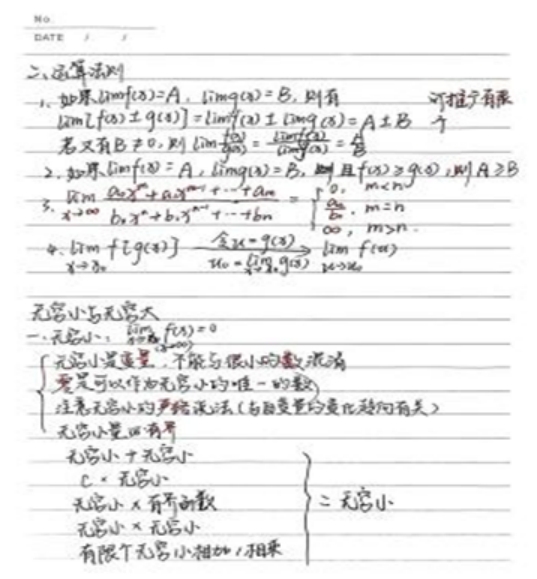 No.
DATE / /
二、运算法则
1、如果limf(x)=A, limg(x)=B, 则有 可推广有限
lim[f(x)±g(x)]=limf(x)±limg(x)=A±B 个
若又有B≠0, 则lim f(x)/g(x) = limf(x)/limg(x) = A/B
2、如果limf(x)=A, limg(x)=B, 且f(x)≥g(x), 则A≥B
3. lim x→∞ (a₀xᵐ+a₁xᵐ⁻¹+…+aₘ)/(b₀xⁿ+b₁xⁿ⁻¹+…+bn) = { 0, m<n
a₀/b₀, m=n
∞, m>n.
4. lim x→x₀ f[g(x)] 令u=g(x) u₀=lim x→x₀ g(x) lim u→u₀ f(u)
无穷小与无穷大
一、无穷小: lim f(x)=0
(x→∞)
无穷小是变量、不能与很小的数混淆
零是可以作为无穷小的唯一的数
注意无穷小的严格说法(与自变量的变化趋向有关)
无穷小量 有界
无穷小+无穷小
C×无穷小
无穷小×有界函数 = 无穷小
无穷小×无穷小
有限个无穷小相加、相乘